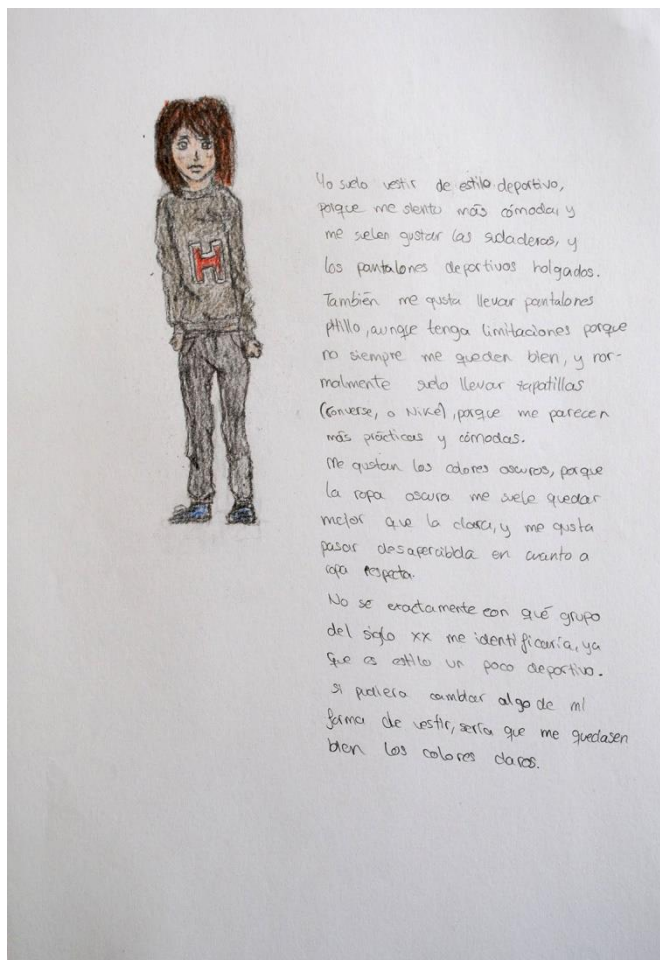 H
Yo suelo vestir de estilo deportivo,
porque me siento más cómoda, y
me suelen gustar las sudaderas, y
los pantalones deportivos holgados.
También me gusta llevar pantalones
pitillo, aunque tenga limitaciones porque
no siempre me queden bien, y nor-
malmente suelo llevar zapatillas
(Converse, o Nike), porque me parecen
más prácticas y cómodas.
Me gustan los colores oscuros, porque
la ropa oscura me suele quedar
mejor que la clara, y me gusta
pasar desapercibida en cuanto a
ropa respecta.
No se exactamente con qué grupo
del siglo XX me identificaría, ya
que es estilo un poco deportivo.
si pudiera cambiar algo de mi
forma de vestir, sería que me quedasen
bien los colores claros.